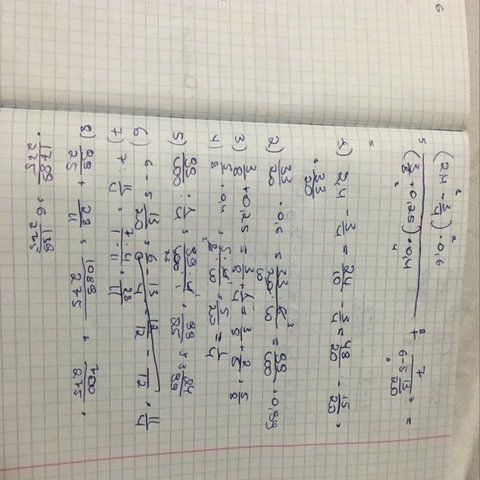 (2,4 - 3/4) · 0,6
(3/8 + 0,25) · 0,4 + 7 / (6 - 5 13/20) =
=
1) 2,4 - 3/4 = 24/10 - 3/4 = 48/20 - 15/20 =
= 33/20
2) 33/20 · 0,6 = 33 · 6 / 20 · 10 = 99/100 = 0,99
3) 3/8 + 0,25 = 3/8 + 1/4 = 3/8 + 2/8 = 5/8
4) 5/8 · 0,4 = 5 · 4 / 8 · 10 = 5/20 = 1/4
5) 99/100 : 1/4 = 99 · 4 / 100 · 1 = 99/25 = 3 24/25
6) 6 - 5 13/20 = 11/4
7) 7 : 11/4 = 7 · 4 / 1 · 11 = 28/11
8) 99/25 + 28/11 = 1089/275 + 700/275 =
= 1789/275 = 6 139/275